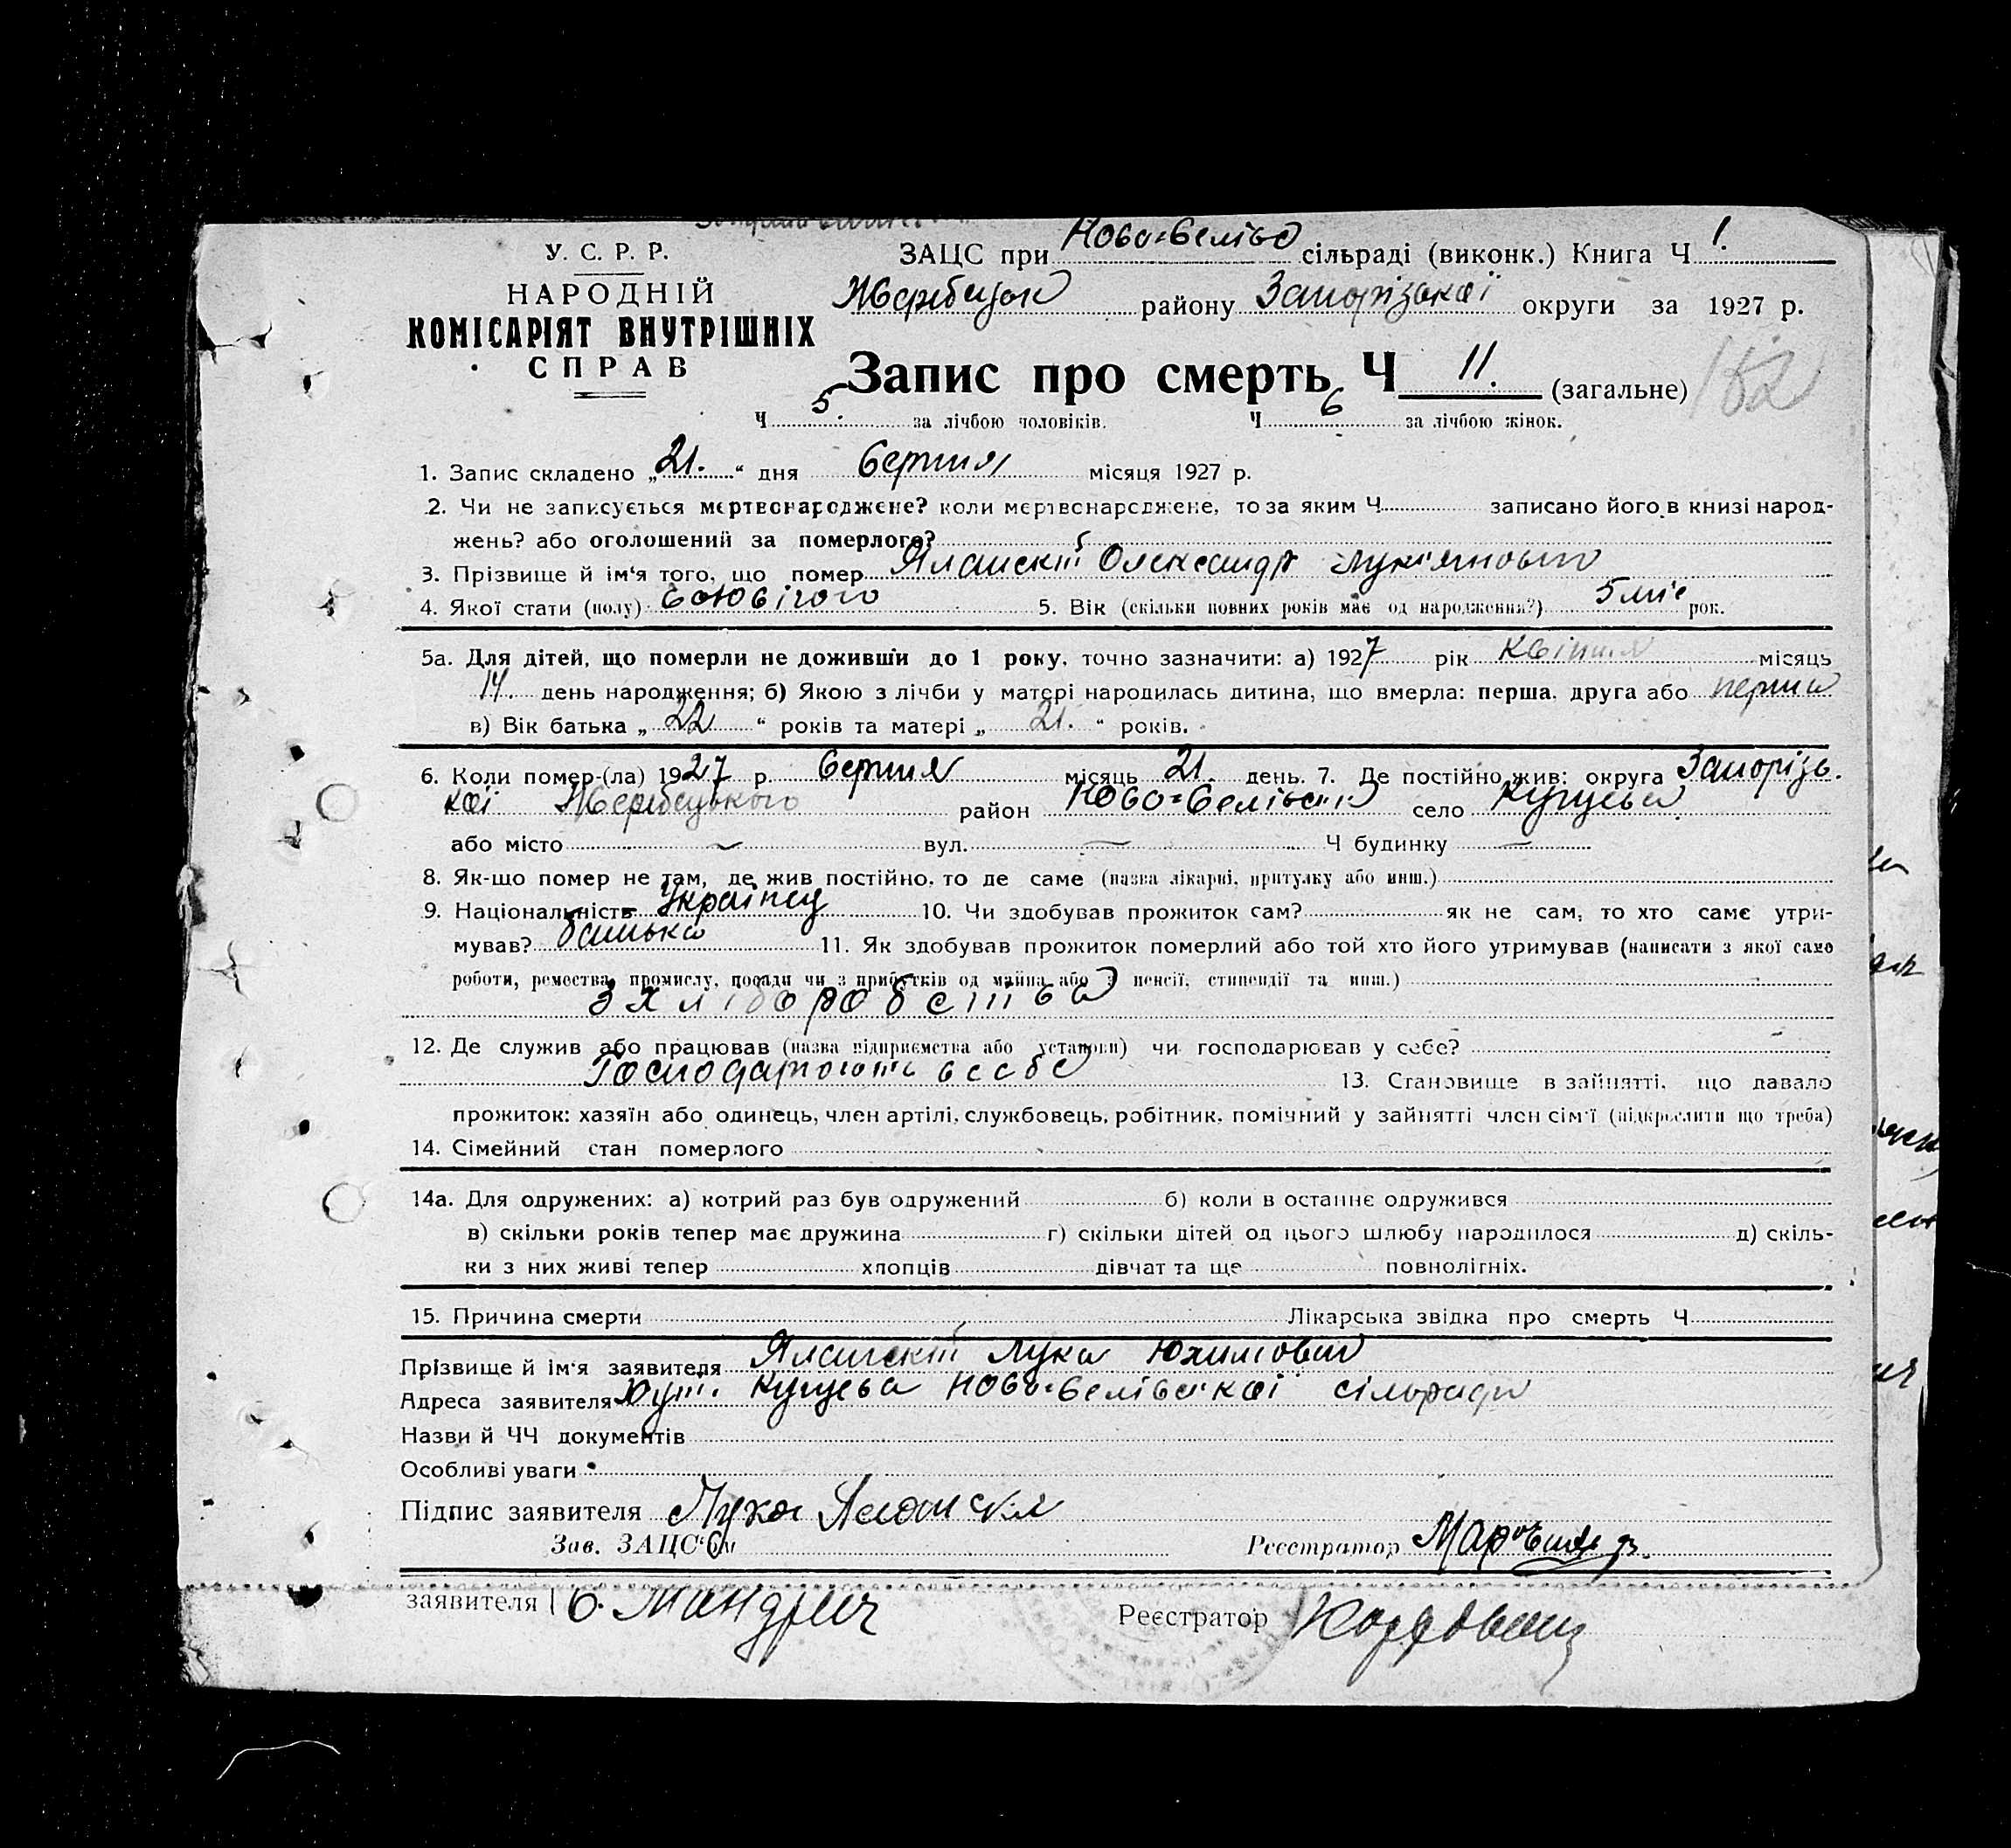 У. С. Р. Р.
НАРОДНІЙ
КОМІСАРІЯТ ВНУТРІШНІХ
СПРАВ
ЗАЦС при Ново- сільраді (виконк.) Книга Ч 1.
району Запорізької округи за 1927 р.
Запис про смерть Ч 11. (загальне) 182
Ч 5. за лічбою чоловіків. Ч 6 за лічбою жінок.
1. Запис складено „ 21. “ дня Серпня місяця 1927 р.
2. Чи не записується мертвонароджене? коли мертвонароджене, то за яким Ч записано його в книзі народ-
жень? або оголошений за померлого?
3. Прізвище й ім'я того, що помер Яланскій Олександр
4. Якої стати (полу) 5. Вік (скільки повних років має од народження?) 5 міс рок.
5а. Для дітей, що померли не доживши до 1 року, точно зазначити: а) 1927 рік Квітня місяць
14. день народження; б) Якою з лічби у матері народилась дитина, що вмерла: перша, друга або перша
в) Вік батька „ 22 “ років та матері „ 21. “ років.
6. Коли помер-(ла) 1927 р. Серпня місяць 21. день. 7. Де постійно жив: округа Запорізь-
кої Жеребецького район село
або місто вул. Ч будинку
8. Як-що помер не там, де жив постійно, то де саме (назва лікарні, притулку або инш.)
9. Національність Українец 10. Чи здобував прожиток сам? як не сам, то хто саме утри-
мував? батько 11. Як здобував прожиток померлий або той хто його утримував (написати з якої само
роботи, ремества, промислу, посади чи з прибутків од майна або з пенсії, стипендії та инш.)
З хліборобства
12. Де служив або працював (назва підприємства або установи) чи господарював у себе?
13. Становище в зайнятті, що давало
прожиток: хазяїн або одинець, член артілі, службовець, робітник, помічний у зайнятті член сім'ї (підкреслити що треба)
14. Сімейний стан померлого
14а. Для одружених: а) котрий раз був одружений б) коли в останнє одружився
в) скільки років тепер має дружина г) скільки дітей од цього шлюбу народилося д) скіль-
ки з них живі тепер хлопців дівчат та ще повнолігніх.
15. Причина смерти Лікарська звідка про смерть Ч
Прізвище й ім'я заявителя Яланскій Лука Юхимович
Адреса заявителя Хут. сільради
Назви й ЧЧ документів
Особливі уваги
Підпис заявителя Лука
Зав. ЗАЦС'ом Реєстратор
заявителя Реєстратор